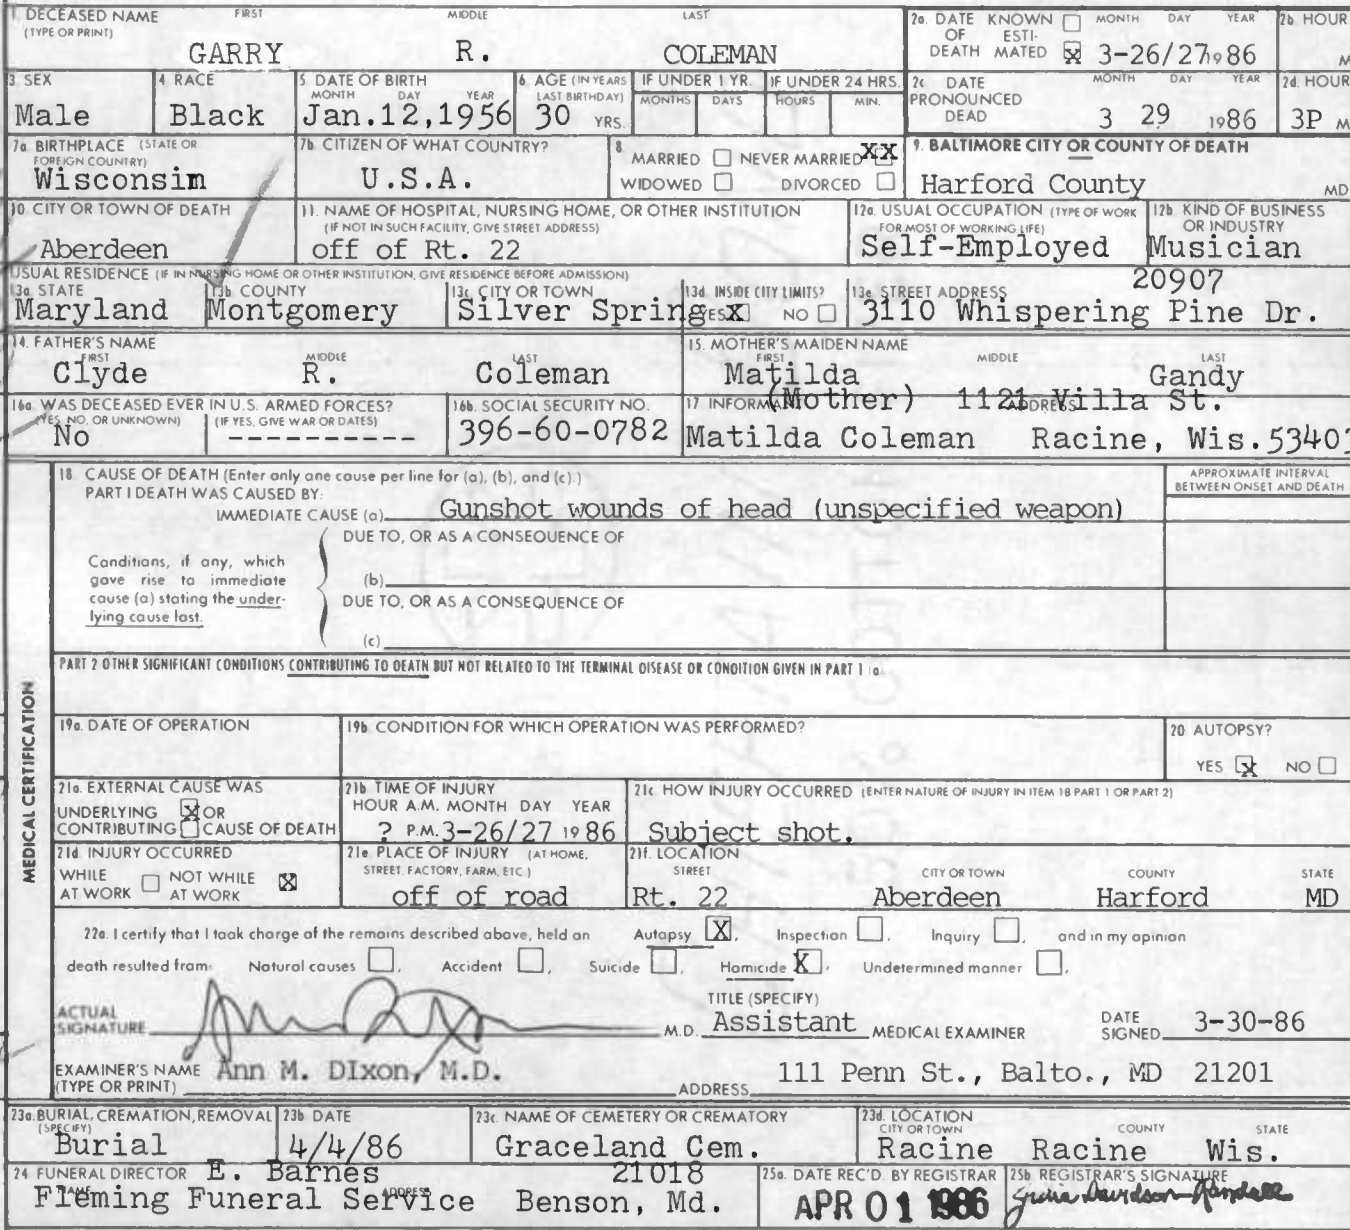 1. DECEASED NAME FIRST MIDDLE LAST
(TYPE OR PRINT)
GARRY R. COLEMAN
2a. DATE KNOWN ☐ MONTH DAY YEAR
OF ESTI-
DEATH MATED ☒ 3-26/27 1986
2b HOUR
M
3 SEX
Male
4. RACE
Black
5 DATE OF BIRTH
MONTH DAY YEAR
Jan.12,1956
6. AGE (IN YEARS
LAST BIRTHDAY)
30 YRS.
IF UNDER 1 YR. IF UNDER 24 HRS.
MONTHS DAYS HOURS MIN.
2c DATE MONTH DAY YEAR
PRONOUNCED
DEAD 3 29 1986
2d. HOUR
3P M
7a. BIRTHPLACE (STATE OR
FOREIGN COUNTRY)
Wisconsim
7b. CITIZEN OF WHAT COUNTRY?
U.S.A.
8
MARRIED ☐ NEVER MARRIED XX
WIDOWED ☐ DIVORCED ☐
9. BALTIMORE CITY OR COUNTY OF DEATH
Harford County MD
10. CITY OR TOWN OF DEATH
Aberdeen
11. NAME OF HOSPITAL, NURSING HOME, OR OTHER INSTITUTION
(IF NOT IN SUCH FACILITY, GIVE STREET ADDRESS)
off of Rt. 22
12a. USUAL OCCUPATION (TYPE OF WORK
FOR MOST OF WORKING LIFE)
Self-Employed
12b. KIND OF BUSINESS
OR INDUSTRY
Musician
USUAL RESIDENCE (IF IN NURSING HOME OR OTHER INSTITUTION, GIVE RESIDENCE BEFORE ADMISSION)
13a. STATE
Maryland
13b. COUNTY
Montgomery
13c. CITY OR TOWN
Silver Spring
13d. INSIDE CITY LIMITS?
YES X NO ☐
13e STREET ADDRESS 20907
3110 Whispering Pine Dr.
14. FATHER'S NAME
FIRST MIDDLE LAST
Clyde R. Coleman
15. MOTHER'S MAIDEN NAME
FIRST MIDDLE LAST
Matilda Gandy
16a. WAS DECEASED EVER IN U.S. ARMED FORCES?
(YES, NO, OR UNKNOWN) (IF YES, GIVE WAR OR DATES)
No -----------
16b. SOCIAL SECURITY NO.
396-60-0782
17 INFORMANT (Mother) ADDRESS 1121 Villa St.
Matilda Coleman Racine, Wis. 53403
MEDICAL CERTIFICATION
18 CAUSE OF DEATH (Enter only one cause per line for (a), (b), and (c).)
PART I DEATH WAS CAUSED BY:
APPROXIMATE INTERVAL
BETWEEN ONSET AND DEATH
IMMEDIATE CAUSE (a) Gunshot wounds of head (unspecified weapon)
DUE TO, OR AS A CONSEQUENCE OF
Conditions, if any, which
gave rise to immediate
cause (a) stating the under-
lying cause last.
(b)
DUE TO, OR AS A CONSEQUENCE OF
(c)
PART 2 OTHER SIGNIFICANT CONDITIONS CONTRIBUTING TO DEATH BUT NOT RELATED TO THE TERMINAL DISEASE OR CONDITION GIVEN IN PART 1 (a)
19a. DATE OF OPERATION
19b CONDITION FOR WHICH OPERATION WAS PERFORMED?
20 AUTOPSY?
YES ☒ NO ☐
21a. EXTERNAL CAUSE WAS
UNDERLYING ☒ OR
CONTRIBUTING ☐ CAUSE OF DEATH
21b TIME OF INJURY
HOUR A.M. MONTH DAY YEAR
? P.M. 3-26/27 1986
21c HOW INJURY OCCURRED (ENTER NATURE OF INJURY IN ITEM 18 PART 1 OR PART 2)
Subject shot.
21d INJURY OCCURRED
WHILE ☐ NOT WHILE ☒
AT WORK AT WORK
21e PLACE OF INJURY (AT HOME,
STREET, FACTORY, FARM, ETC.)
off of road
21f. LOCATION
STREET CITY OR TOWN COUNTY STATE
Rt. 22 Aberdeen Harford MD
22a. I certify that I took charge of the remains described above, held an Autopsy ☒, Inspection ☐, Inquiry ☐, and in my opinion
death resulted from: Natural causes ☐, Accident ☐, Suicide ☐, Homicide ☒, Undetermined manner ☐.
ACTUAL
SIGNATURE M.D.
TITLE (SPECIFY)
Assistant MEDICAL EXAMINER
DATE
SIGNED 3-30-86
EXAMINER'S NAME
(TYPE OR PRINT) Ann M. DIxon, M.D.
ADDRESS 111 Penn St., Balto., MD 21201
23a. BURIAL, CREMATION, REMOVAL
(SPECIFY)
Burial
23b DATE
4/4/86
23c. NAME OF CEMETERY OR CREMATORY
Graceland Cem.
23d. LOCATION
CITY OR TOWN COUNTY STATE
Racine Racine Wis.
24 FUNERAL DIRECTOR E. Barnes 21018
NAME ADDRESS
Fleming Funeral Service Benson, Md.
25a. DATE REC'D. BY REGISTRAR
APR 01 1986
25b REGISTRAR'S SIGNATURE
Julia Davidson-Randall